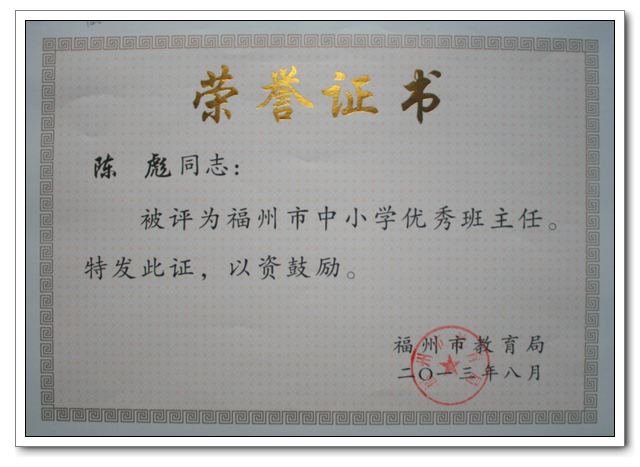 荣誉证书
陈 彪同志：
被评为福州市中小学优秀班主任。
特发此证，以资鼓励。
福州市教育局
二〇一三年八月